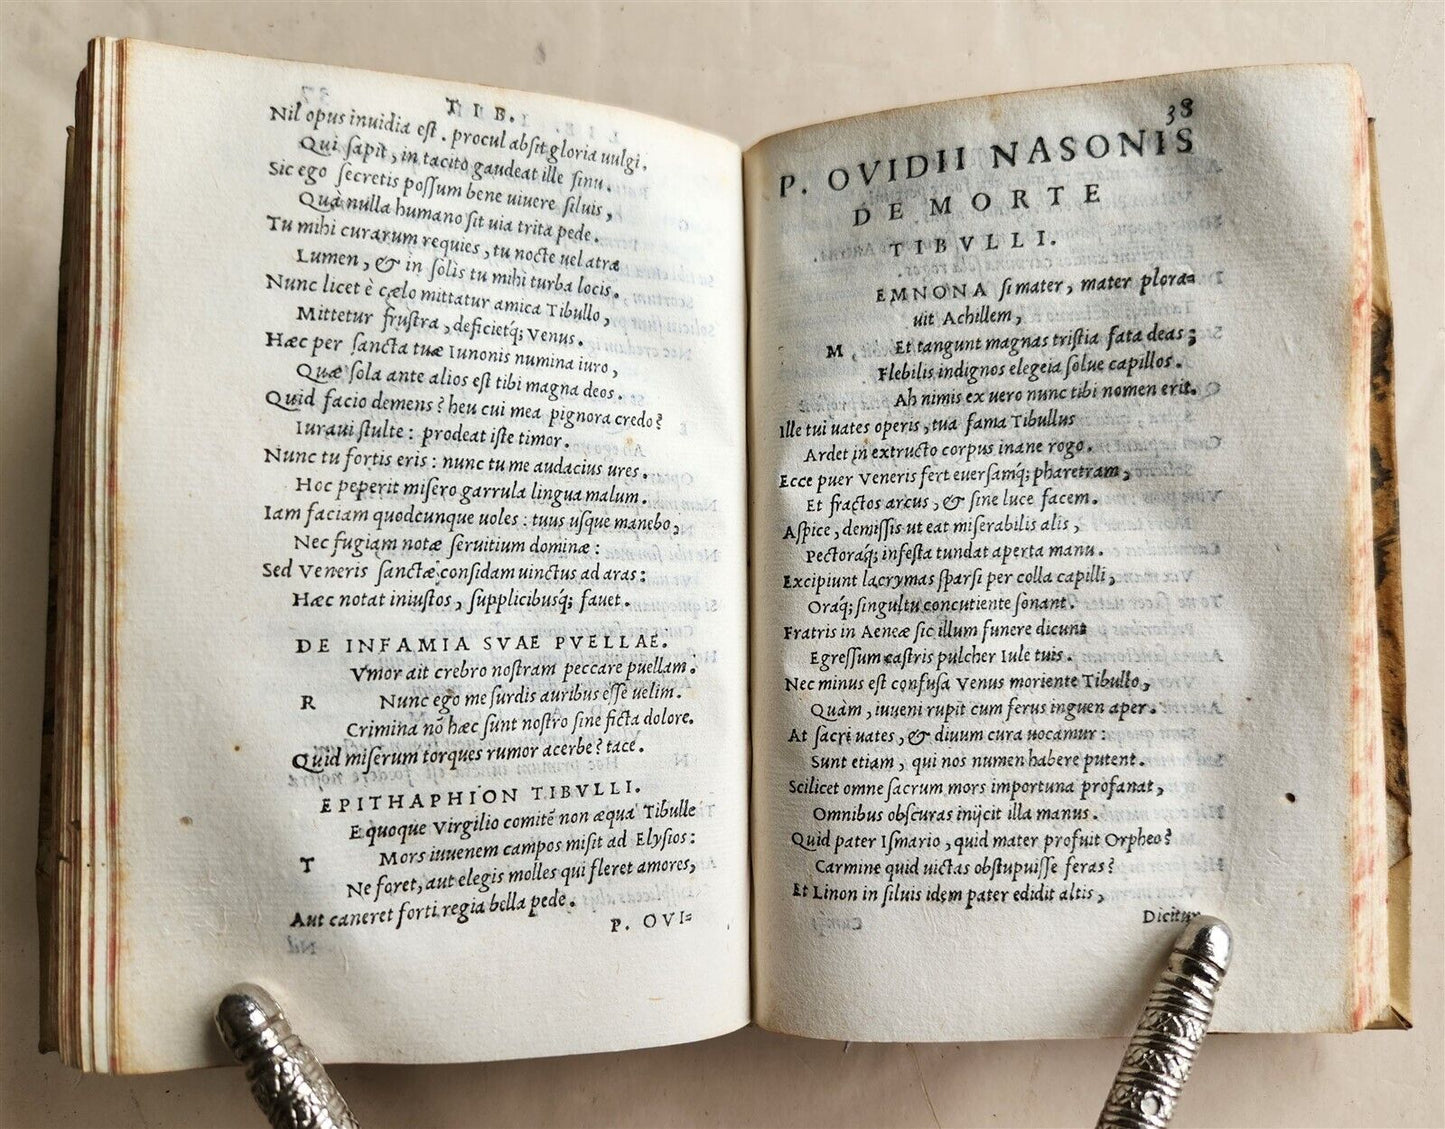 TIB.
Nil opus inuidia eſt. procul abſit gloria uulgi.
Qui ſapit, in tacito gaudeat ille ſinu.
Sic ego ſecretis poſſum bene uiuere ſiluis,
Quà nulla humano ſit uia trita pede.
Tu mihi curarum requies, tu nocte uel atra
Lumen, & in ſolis tu mihi turba locis.
Nunc licet è cælo mittatur amica Tibullo,
Mittetur fruſtra, deficietq; Venus.
Hæc per ſancta tuæ Iunonis numina iuro,
Quæ ſola ante alios eſt tibi magna deos.
Quid facio demens? heu cui mea pignora credo?
Iuraui ſtulte: prodeat iſte timor.
Nunc tu fortis eris: nunc tu me audacius ures.
Hoc peperit miſero garrula lingua malum.
Iam faciam quodcunque uoles: tuus uſque manebo,
Nec fugiam notæ ſeruitium dominæ:
Sed Veneris ſanctæ conſidam uinctus ad aras:
Hæc notat iniuſtos, ſupplicibusq́; fauet.
DE INFAMIA SVAE PVELLAE.
Vmor ait crebro noſtram peccare puellam.
R Nunc ego me ſurdis auribus eſſe uelim.
Crimina nõ hæc ſunt noſtro ſine ficta dolore.
Quid miſerum torques rumor acerbe? tace.
EPITHAPHION TIBVLLI.
E quoque Virgilio comitẽ non æqua Tibulle
T Mors iuuenem campos miſit ad Elyſios:
Ne foret, aut elegis molles qui fleret amores,
Aut caneret forti regia bella pede.
P. OVI=
38
P. OVIDII NASONIS
DE MORTE
TIBVLLI.
EMNONA ſi mater, mater plora=
uit Achillem,
M, Et tangunt magnas triſtia fata deas;
Flebilis indignos elegeia ſolue capillos.
Ah nimis ex uero nunc tibi nomen erit.
Ille tui uates operis, tua fama Tibullus
Ardet in extructo corpus inane rogo.
Ecce puer Veneris fert euerſamq́; pharetram,
Et fractos arcus, & ſine luce facem.
Aſpice, demiſſis ut eat miſerabilis alis,
Pectoraq́; infeſta tundat aperta manu.
Excipiunt lacrymas ſparſi per colla capilli,
Oraq́; ſingultu concutiente ſonant.
Fratris in Aeneæ ſic illum funere dicunt
Egreſſum caſtris pulcher Iule tuis.
Nec minus eſt confuſa Venus moriente Tibullo,
Quàm, iuueni rupit cum ferus inguen aper.
At ſacri uates, & diuum cura uocamur:
Sunt etiam, qui nos numen habere putent.
Scilicet omne ſacrum mors importuna profanat,
Omnibus obſcuras inijcit illa manus.
Quid pater Iſmario, quid mater profuit Orpheo?
Carmine quid uictas obſtupuiſſe feras?
Et Linon in ſiluis idem pater edidit altis,
Dicitur